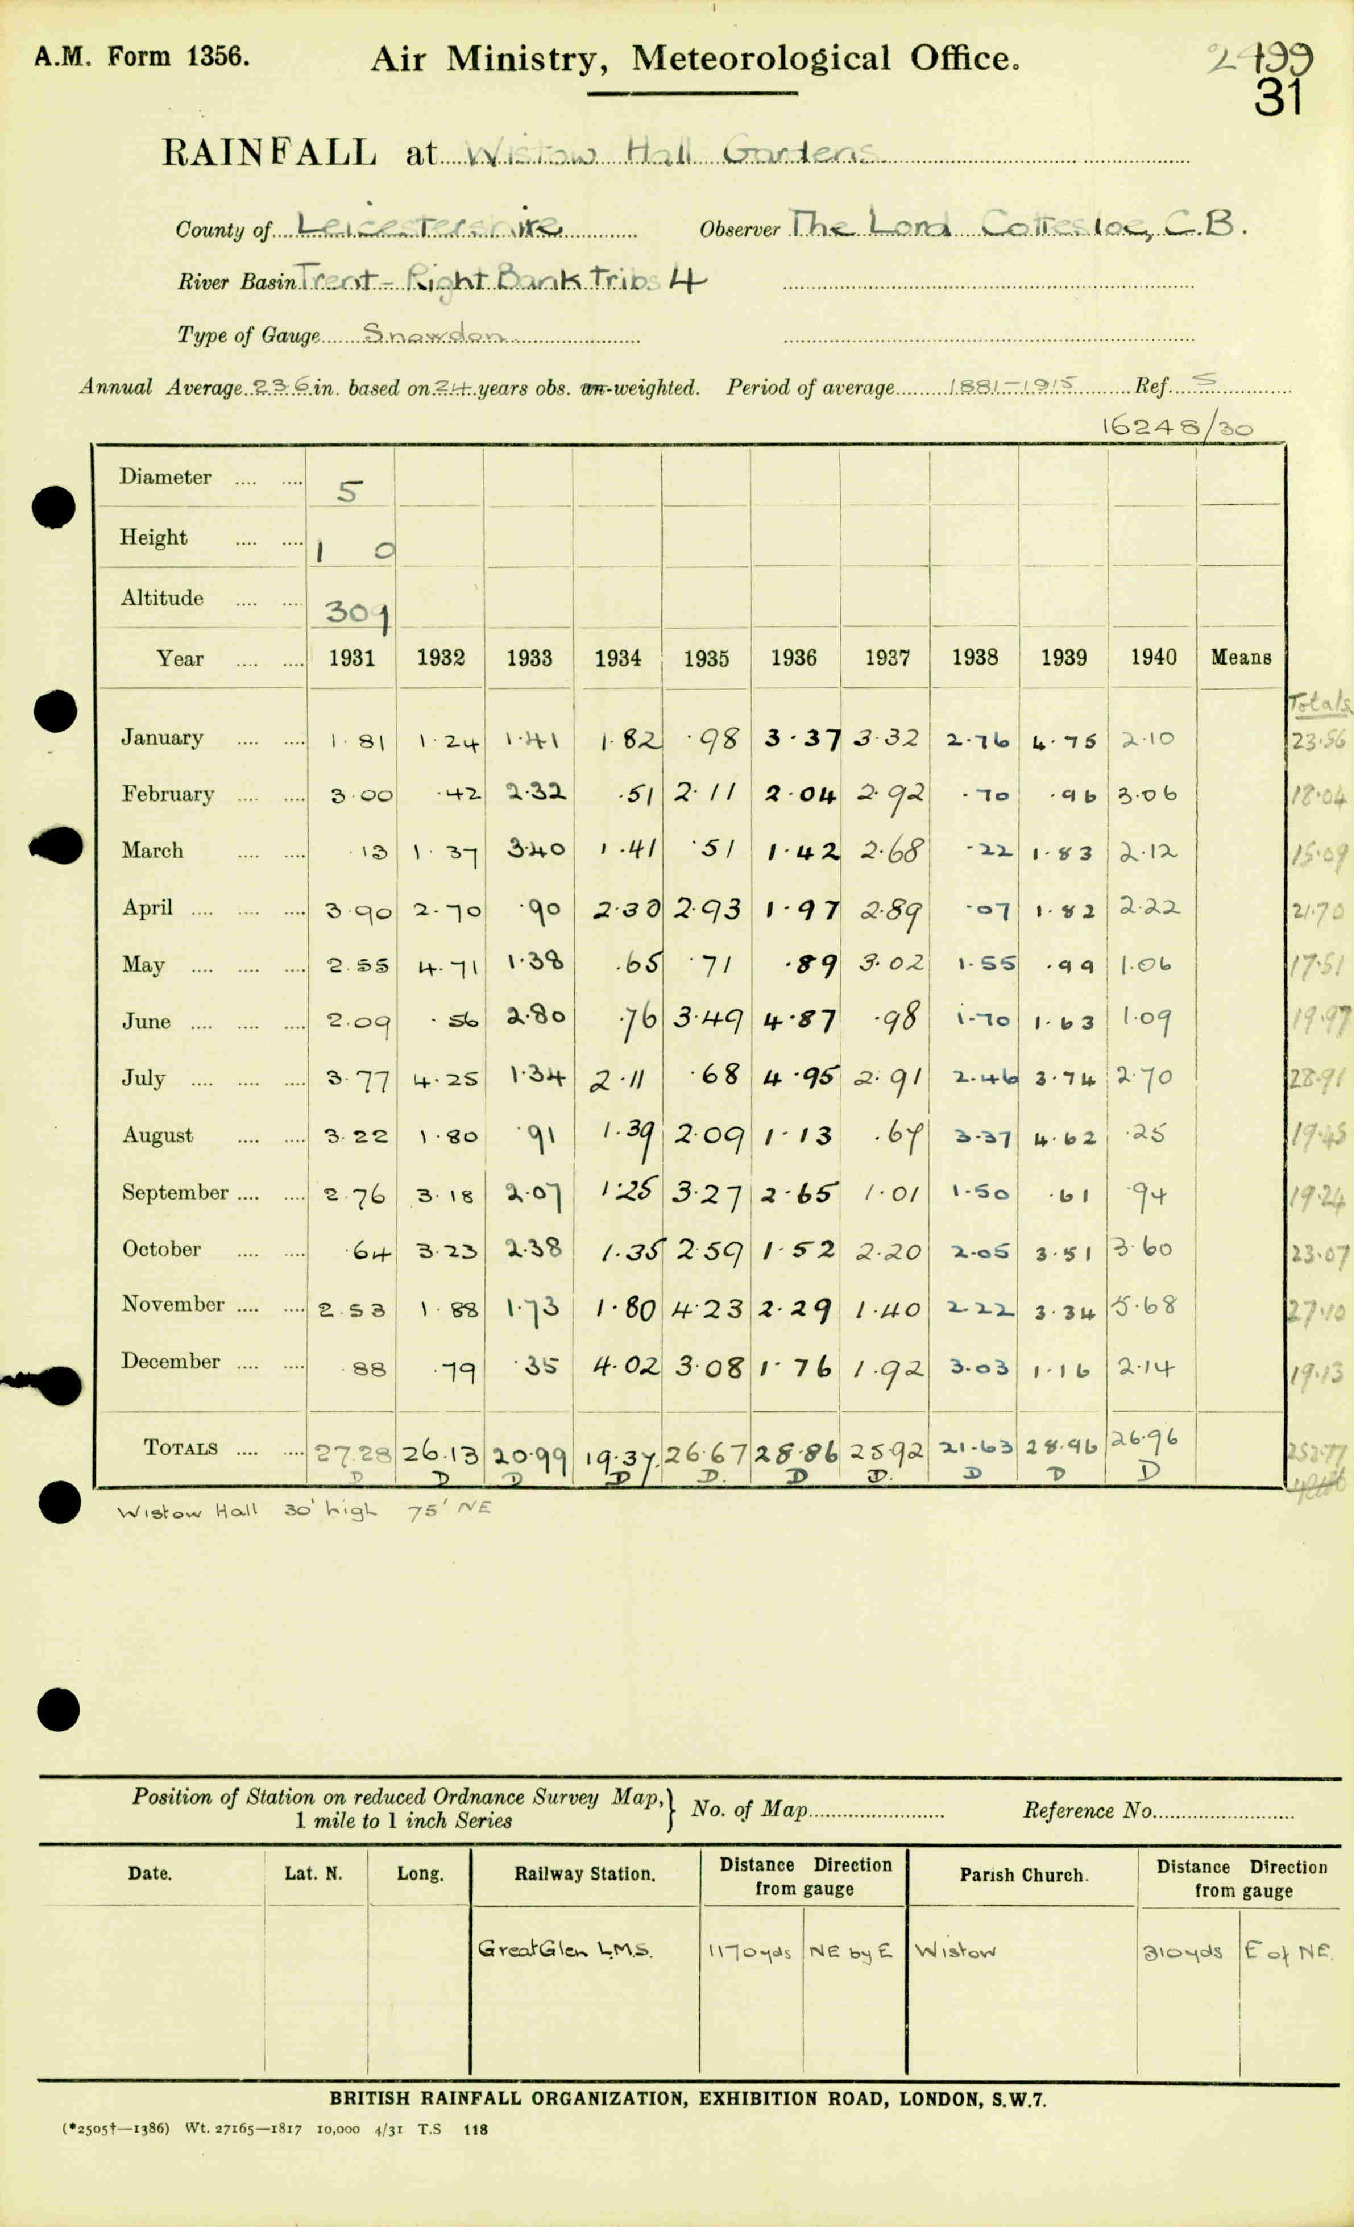 A.M. Form 1356. Air Ministry, Meteorological Office. 2499
31
RAINFALL at Wistow Hall Gardens
County of Leicestershire Observer The Lord Cottesloe, C.B.
River Basin Trent - Right Bank Tribs 4
Type of Gauge Snowdon
Annual Average 23.6 in. based on 24 years obs. un-weighted. Period of average 1881-1915 Ref. S
16248/30
Diameter 5
Height 1 0
Altitude 309
Year 1931 1932 1933 1934 1935 1936 1937 1938 1939 1940 Means
Totals
January 1.81 1.24 1.41 1.82 .98 3.37 3.32 2.76 4.75 2.10 23.56
February 3.00 .42 2.32 .51 2.11 2.04 2.92 .70 .96 3.06 18.04
March .13 1.37 3.40 1.41 .51 1.42 2.68 .22 1.83 2.12 15.09
April 3.90 2.70 .90 2.30 2.93 1.97 2.89 .07 1.82 2.22 21.70
May 2.55 4.71 1.38 .65 .71 .89 3.02 1.55 .99 1.06 17.51
June 2.09 .56 2.80 .76 3.49 4.87 .98 1.70 1.63 1.09 19.97
July 3.77 4.25 1.34 2.11 .68 4.95 2.91 2.46 3.74 2.70 28.91
August 3.22 1.80 .91 1.39 2.09 1.13 .67 3.37 4.62 .25 19.45
September 2.76 3.18 2.07 1.25 3.27 2.65 1.01 1.50 .61 .94 19.24
October .64 3.23 2.38 1.35 2.59 1.52 2.20 2.05 3.51 3.60 23.07
November 2.53 1.88 1.73 1.80 4.23 2.29 1.40 2.22 3.34 5.68 27.10
December .88 .79 .35 4.02 3.08 1.76 1.92 3.03 1.16 2.14 19.13
TOTALS 27.28 26.13 20.99 19.37 26.67 28.86 25.92 21.63 28.96 26.96 252.77
D D D D D. D D. D D D
Wistow Hall 30' high 75' NE
Position of Station on reduced Ordnance Survey Map, 1 mile to 1 inch Series } No. of Map Reference No.
Date. Lat. N. Long. Railway Station. Distance Direction from gauge Parish Church. Distance Direction from gauge
Great Glen L.M.S. 1170 yds NE by E Wistow 310 yds E of NE.
BRITISH RAINFALL ORGANIZATION, EXHIBITION ROAD, LONDON, S.W.7.
(*2505†—1386) Wt. 27165—1817 10,000 4/31 T.S 118